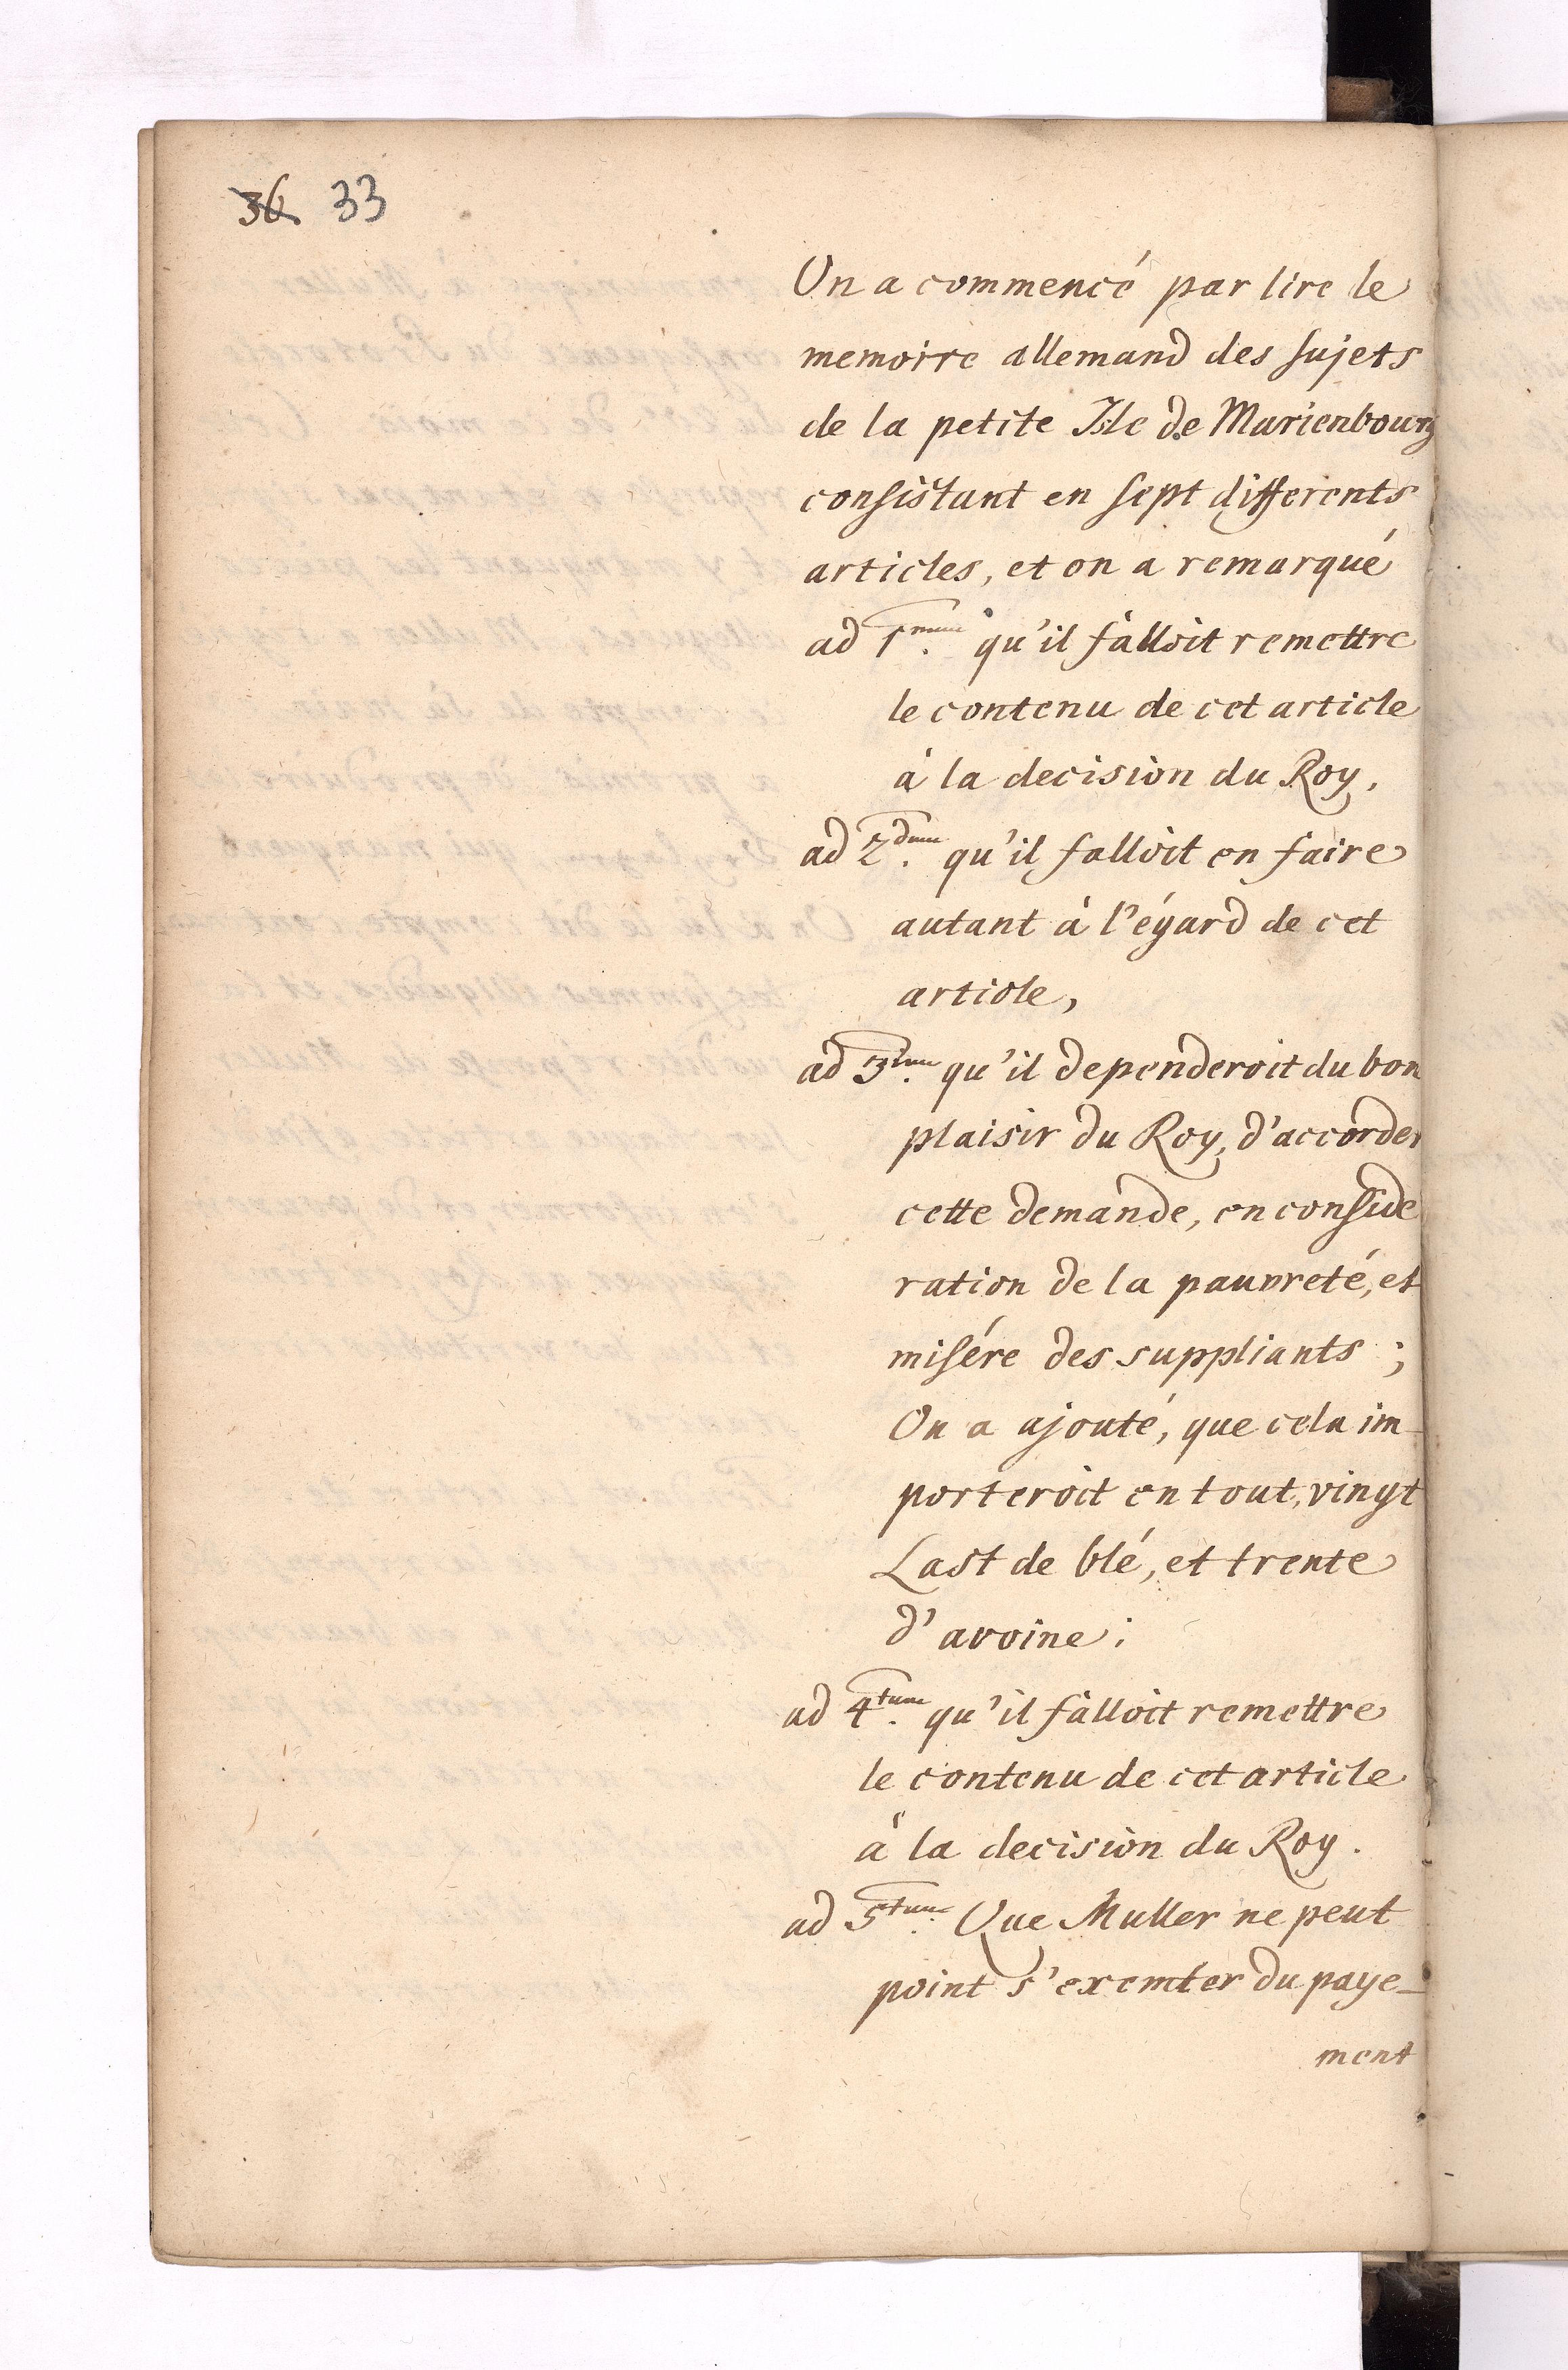 36 33
On a commencé par lire le
memoire allemand des sujets
de la petite Isle de Marienbourg
consistant en sept differents
articles, et on a remarqué
ad 1mum. qu'il falloit remettre
le contenu de cet article
à la decision du Roy,
ad 2dum. qu'il falloit en faire
autant à l'égard de cet
article,
ad 3ium. qu'il dependeroit du bon
plaisir du Roy, d'accorder
cette demande, en conside
ration de la pauvreté, et
misére des suppliants ;
On a ajouté, que cela im-
porteroit en tout, vingt
Last de blé, et trente
d'avoine ;
ad 4tum. qu'il falloit remettre
le contenu de cet article
à la decision du Roy.
ad 5tum. Que Muller ne peut
point s'exemter du paye-
ment